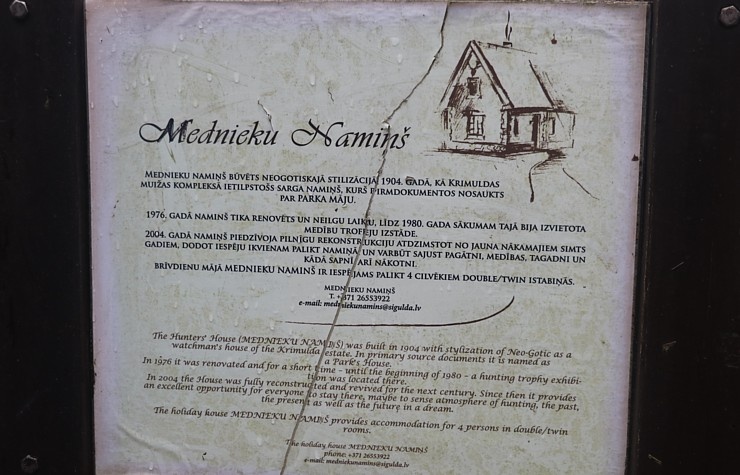 Mednieku Namiņš
Mednieku namiņš būvēts neogotiskajā stilizācijā 1904. gadā, kā Krimuldas
muižas kompleksā ietilpstošs sarga namiņš, kurš pirmdokumentos nosaukts
par Parka māju.
1976. gadā namiņš tika renovēts un neilgu laiku, līdz 1980. gada sākumam tajā bija izvietota
medību trofeju izstāde.
2004. gadā namiņš piedzīvoja pilnīgu rekonstrukciju atdzimstot no jauna nākamajiem simts
gadiem, dodot iespēju ikvienam palikt namiņā un varbūt sajust pagātni, medības, tagadni un
kādā sapnī arī nākotni.
Brīvdienu mājā MEDNIEKU NAMIŅŠ ir iespējams palikt 4 cilvēkiem double/twin istabiņās.
Mednieku namiņš
T. +371 26553922
e-mail: medniekunamins@sigulda.lv
The Hunters' House (MEDNIEKU NAMIŅŠ) was built in 1904 with stylization of Neo-Gotic as a
watchman's house of the Krimulda estate. In primary source documents it is named as
a Park's House.
In 1976 it was renovated and for a short time – until the beginning of 1980 – a hunting trophy exhibi-
tion was located there.
In 2004 the House was fully reconstructed and revived for the next century. Since then it provides
an excellent opportunity for everyone to stay there, maybe to sense atmosphere of hunting, the past,
the present as well as the future in a dream.
The holiday house MEDNIEKU NAMIŅŠ provides accommodation for 4 persons in double/twin
rooms.
The holiday house MEDNIEKU NAMIŅŠ
phone: +371 26553922
e-mail: medniekunamins@sigulda.lv